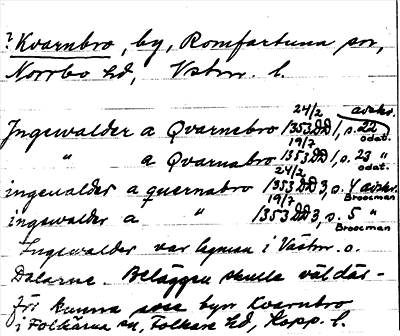 ? Kvarnbro, by, Romfartuna sn,
Norrbo hd, Västm. l.
24/2 avskr.
Ingewalder a Qvarnebro 1353 DD 1, s. 22
19/7 odat.
" a Qvarnabro 1353 DD 1, s. 23 "
24/2 odat.
ingeualder a quernabro 1353 DD 3, s. 4 avskr.
19/7 Broocman
ingewalder a " 1353 DD 3, s. 5 "
Broocman
Ingewalder var lagman i Västm. o.
Dalarne. Beläggen skulle väl där-
för kunna avse byn Kvarnbro
i Folkärna sn, Folkare hd, Kopp. l.